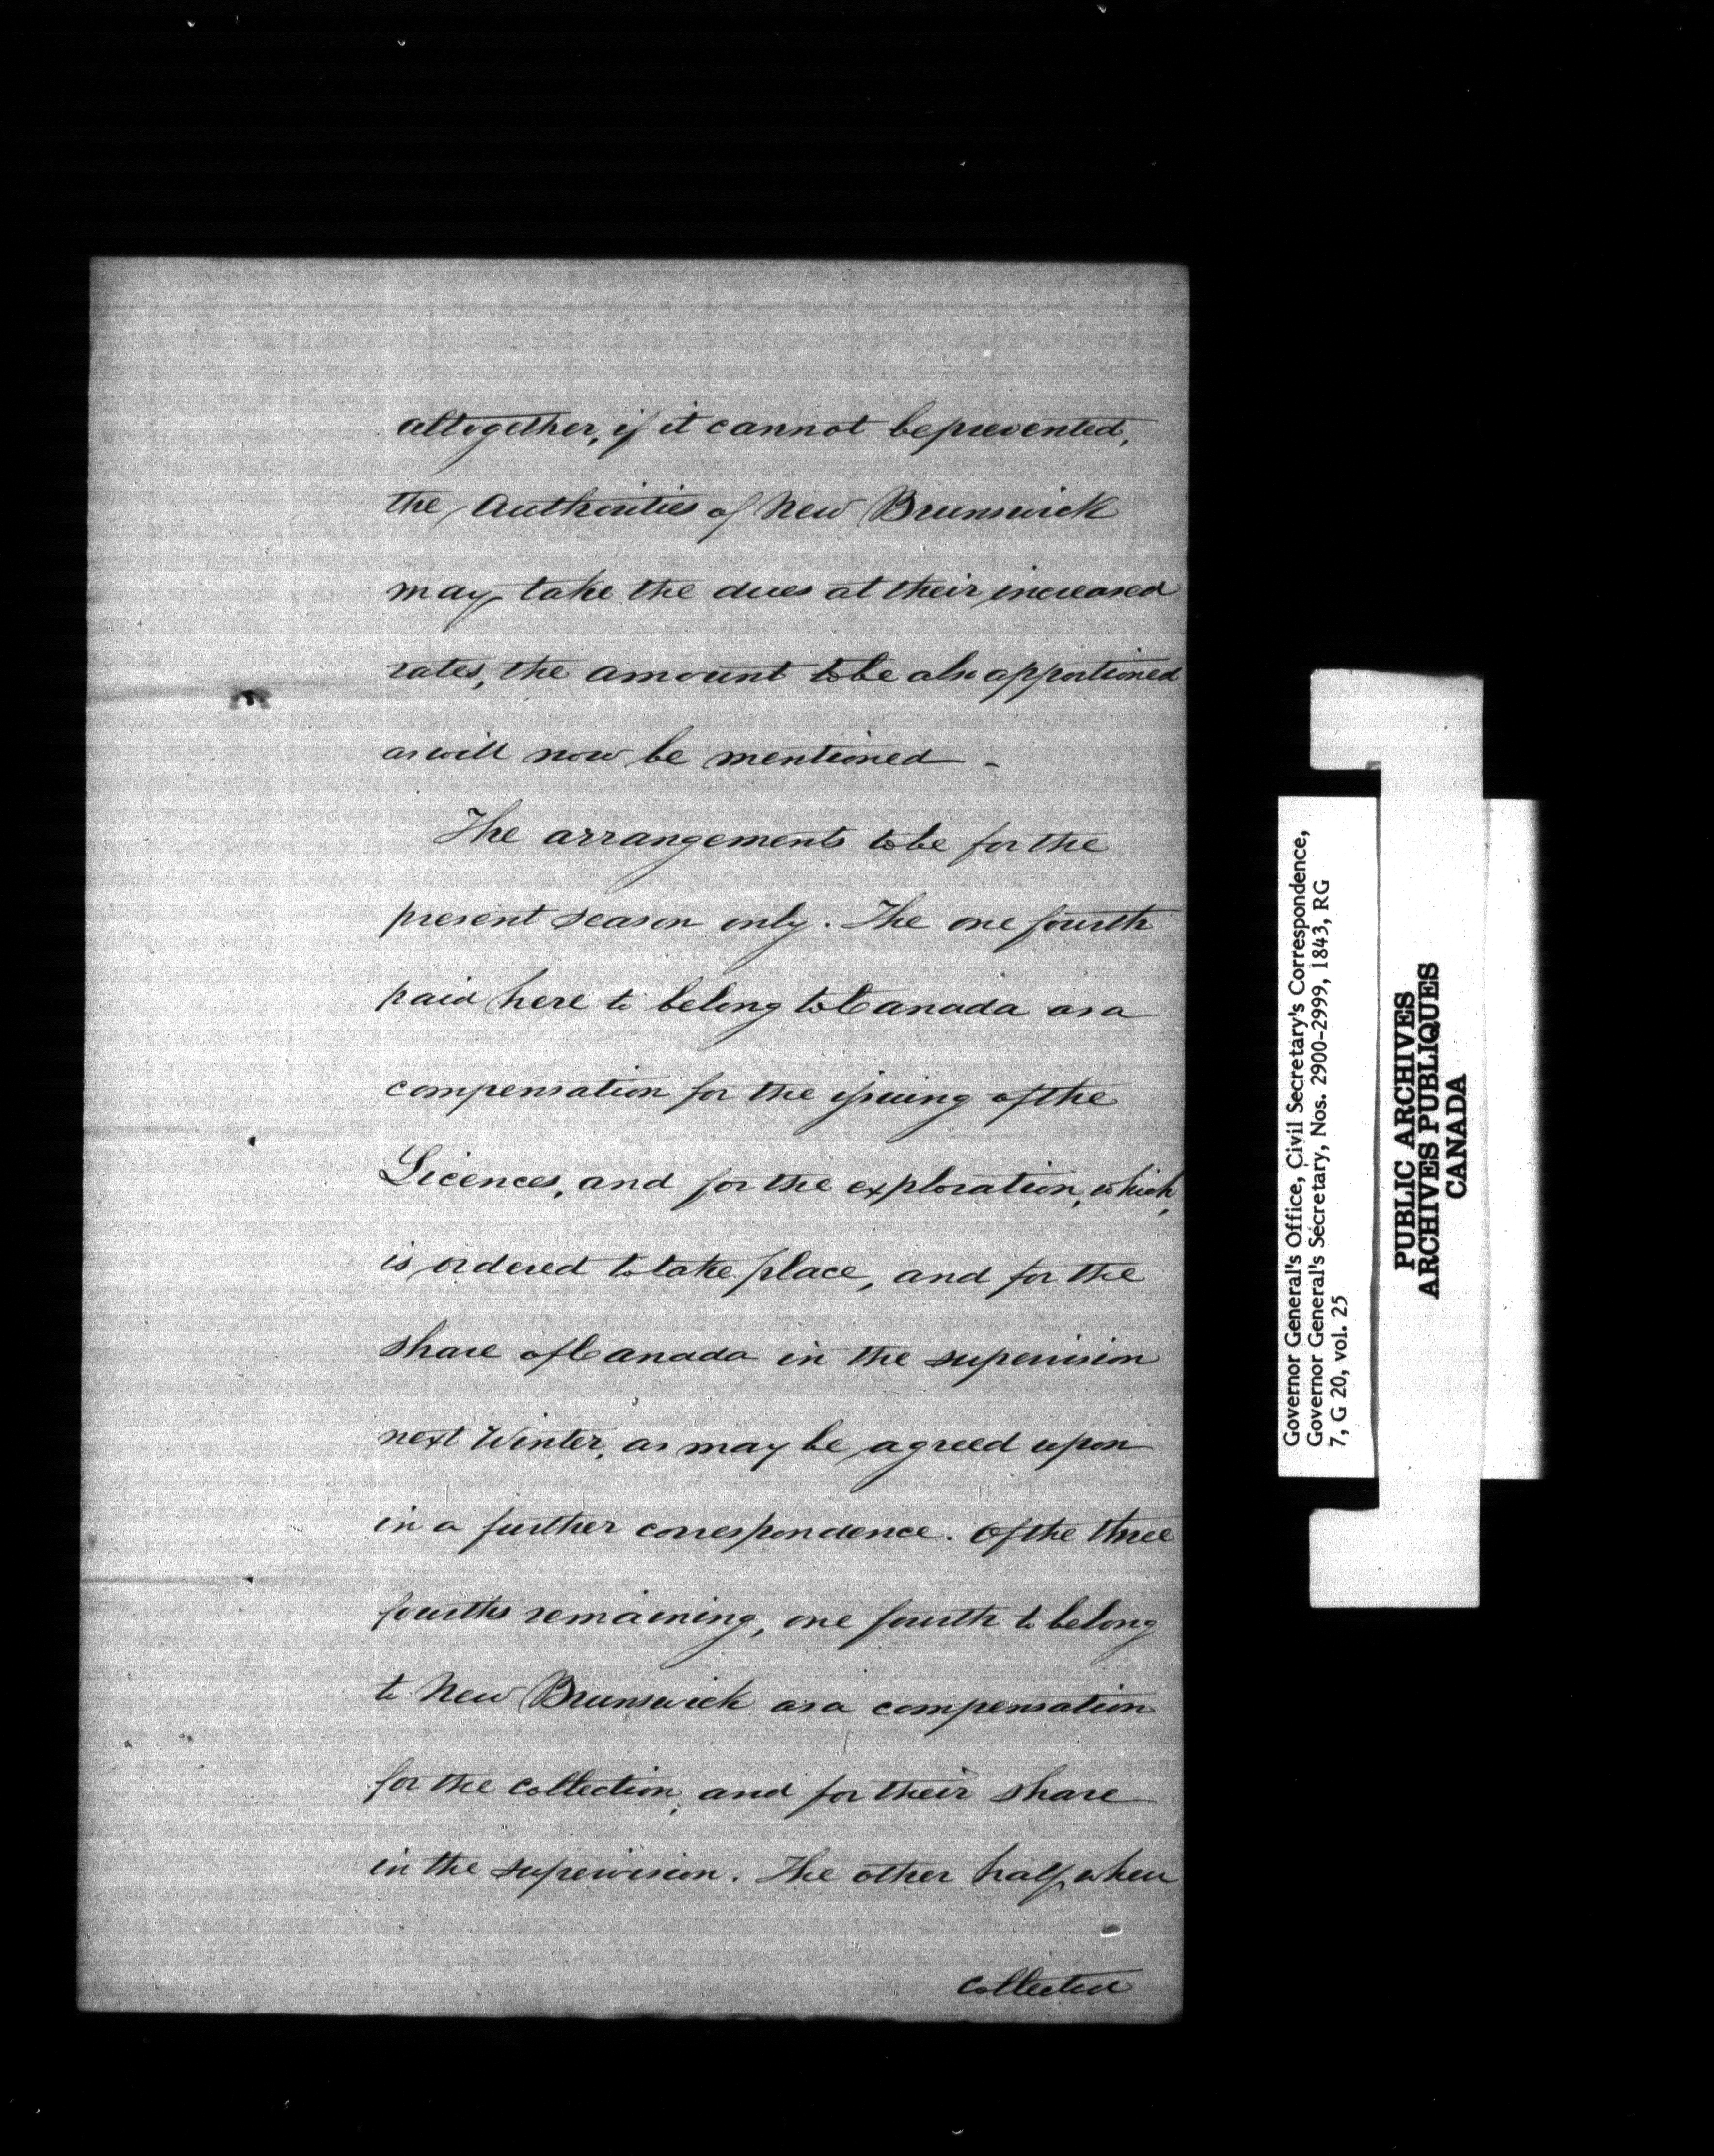 altogether, if it cannot be prevented,
the Authorities of New Brunswick
may take the dues at their increased
rates, the amount to be also apportioned
as will now be mentioned -
The arrangements to be for the
present season only. The one fourth
paid here to belong to Canada as a
compensation for the issuing of the
Licences, and for the exploration, which,
is ordered to take place, and for the
share of Canada in the supervision
next Winter, as may be agreed upon
in a further correspondence. Of the three
fourths remaining, one fourth to belong
to New Brunswick as a compensation
for the collection, and for their share
in the supervision. The other half, when
collected
Governor General's Office, Civil Secretary's Correspondence,
Governor General's Secretary, Nos. 2900-2999, 1843, RG
7, G 20, vol. 25
PUBLIC ARCHIVES
ARCHIVES PUBLIQUES
CANADA